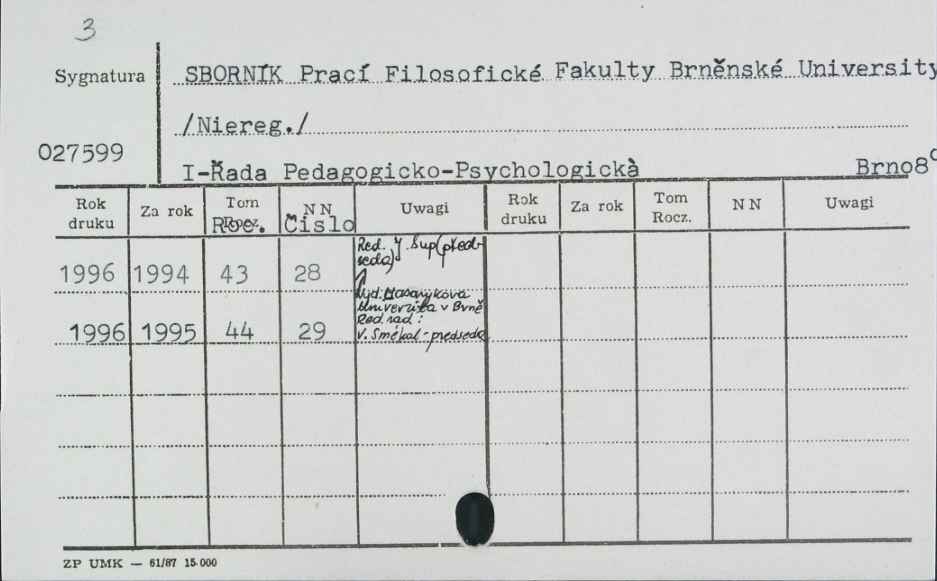 3
Sygnatura
SBORNÍK Prací Filosofické Fakulty Brněnské University
/Niereg./
027599
I-Řada Pedagogicko-Psychologickà Brno8°
Rok druku Za rok Tom Rocz. NN Čislo Uwagi Rok druku Za rok Tom Rocz. NN Uwagi
1996 1994 43 28 Red. J. Sup(před-
seda)
Vyd. Masarykova
Univerzita v Brně
Red. rad:
1996 1995 44 29 V. Smékal - předseda
ZP UMK — 61/87 15.000